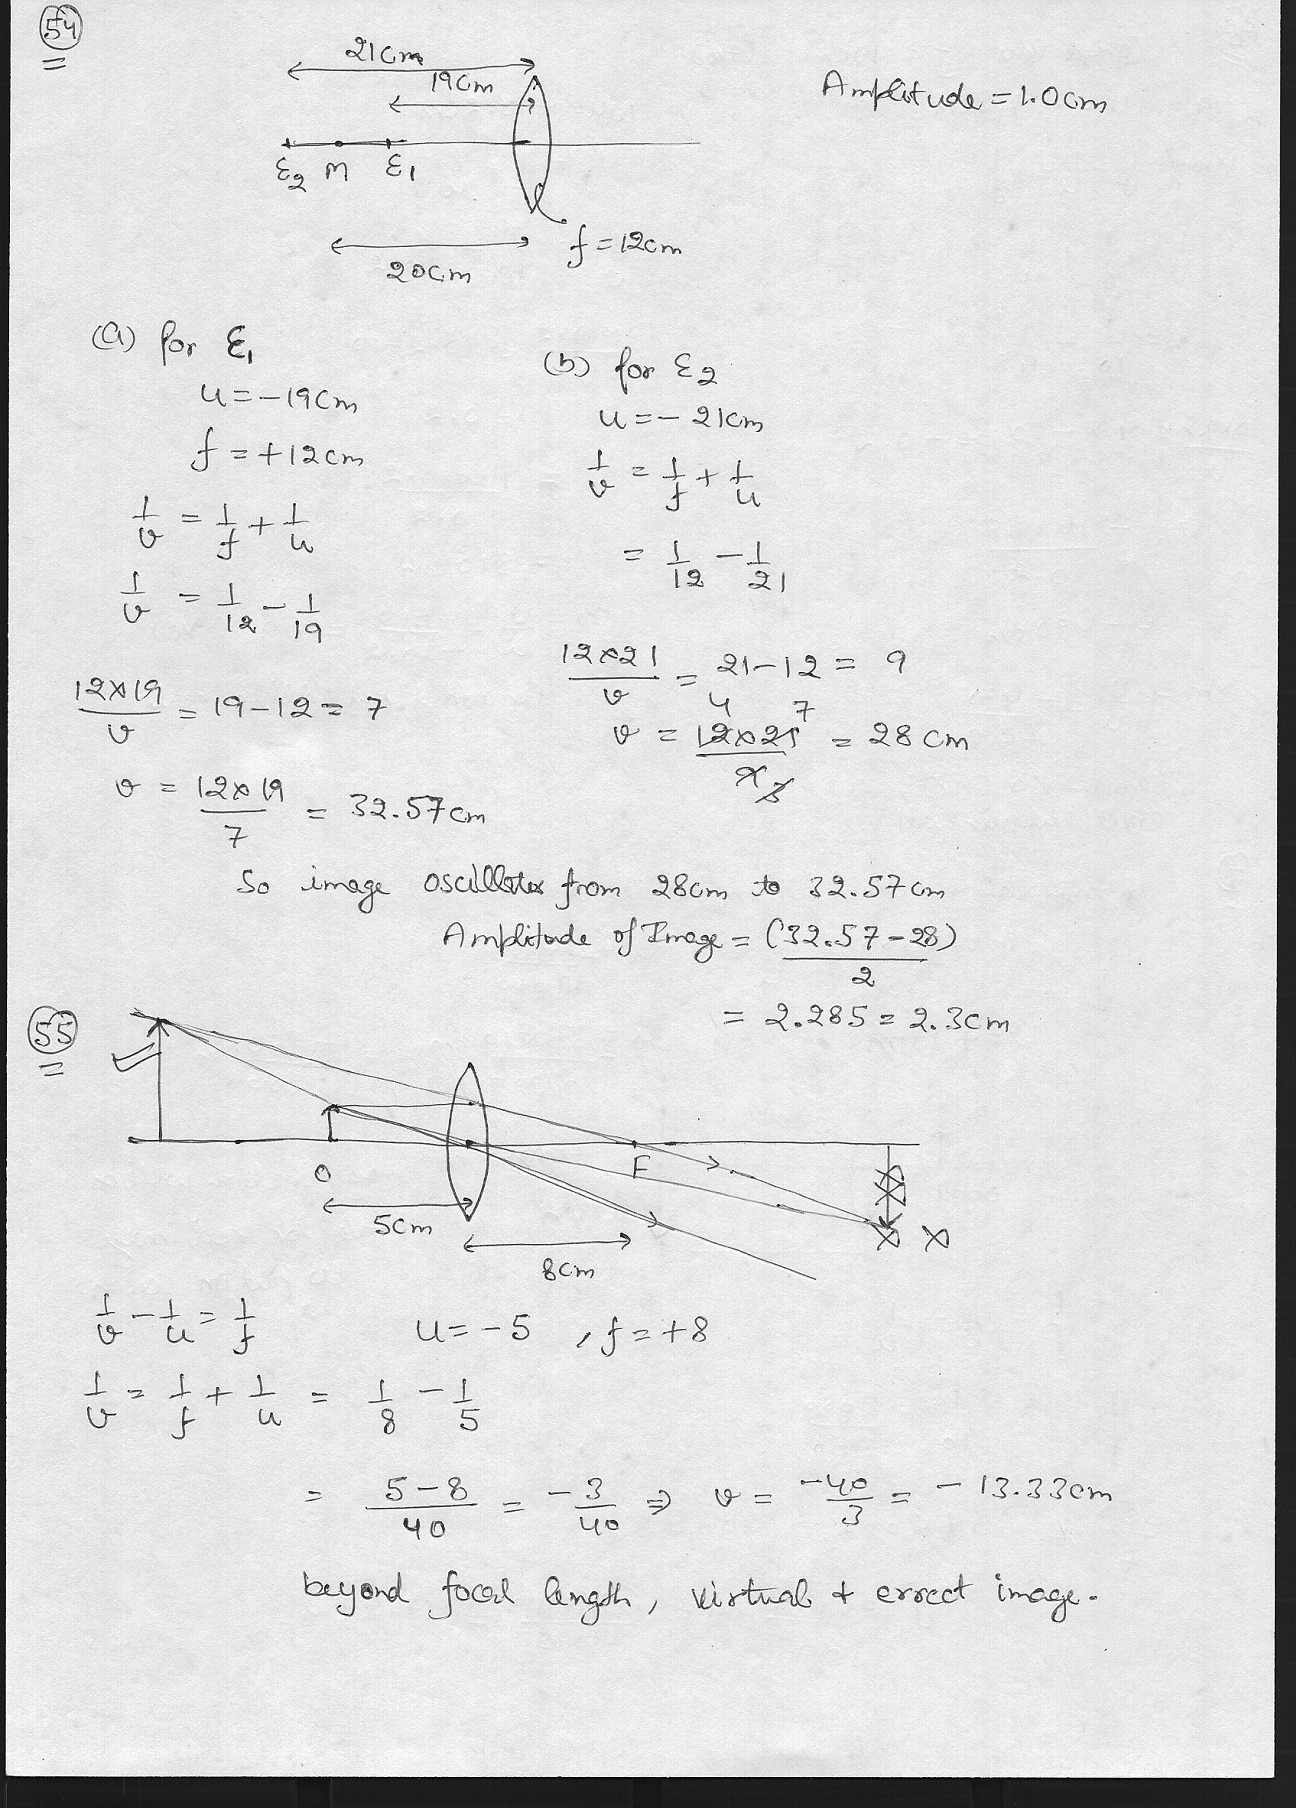 54
21cm
19cm
Amplitude = 1.0cm
E2 M E1
f = 12cm
20cm
(a) for E1
u = -19cm
f = +12cm
1/v = 1/f + 1/u
1/v = 1/12 - 1/19
12×19/v = 19-12 = 7
v = 12×19/7 = 32.57cm
(b) for E2
u = - 21cm
1/v = 1/f + 1/u
= 1/12 - 1/21
12×21/v = 21-12 = 9
4 7
v = 12×21/9 3 = 28cm
So image oscillates from 28cm to 32.57cm
Amplitude of Image = (32.57-28)/2
= 2.285 = 2.3cm
55
O
F
5cm
8cm
1/v - 1/u = 1/f u = -5 , f = +8
1/v = 1/f + 1/u = 1/8 - 1/5
= 5-8/40 = -3/40 ⇒ v = -40/3 = -13.33cm
beyond focal length, virtual & errect image.